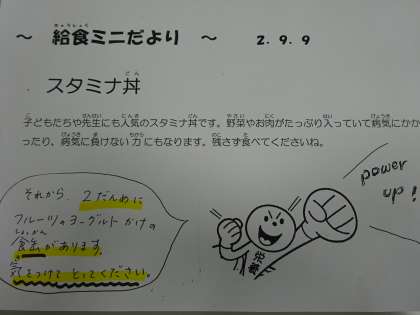 ～ 給食ミニだより ～ 2.9.9
スタミナ丼
子どもたちや先生にも人気のスタミナ丼です。野菜やお肉がたっぷり入っていて病気にかか
ったり、病気に負けない力にもなります。残さず食べてくださいね。
power
up!
それから、2だんめに
フルーツのヨーグルトかけの
食缶があります。
気をつけて とってください。
栄養